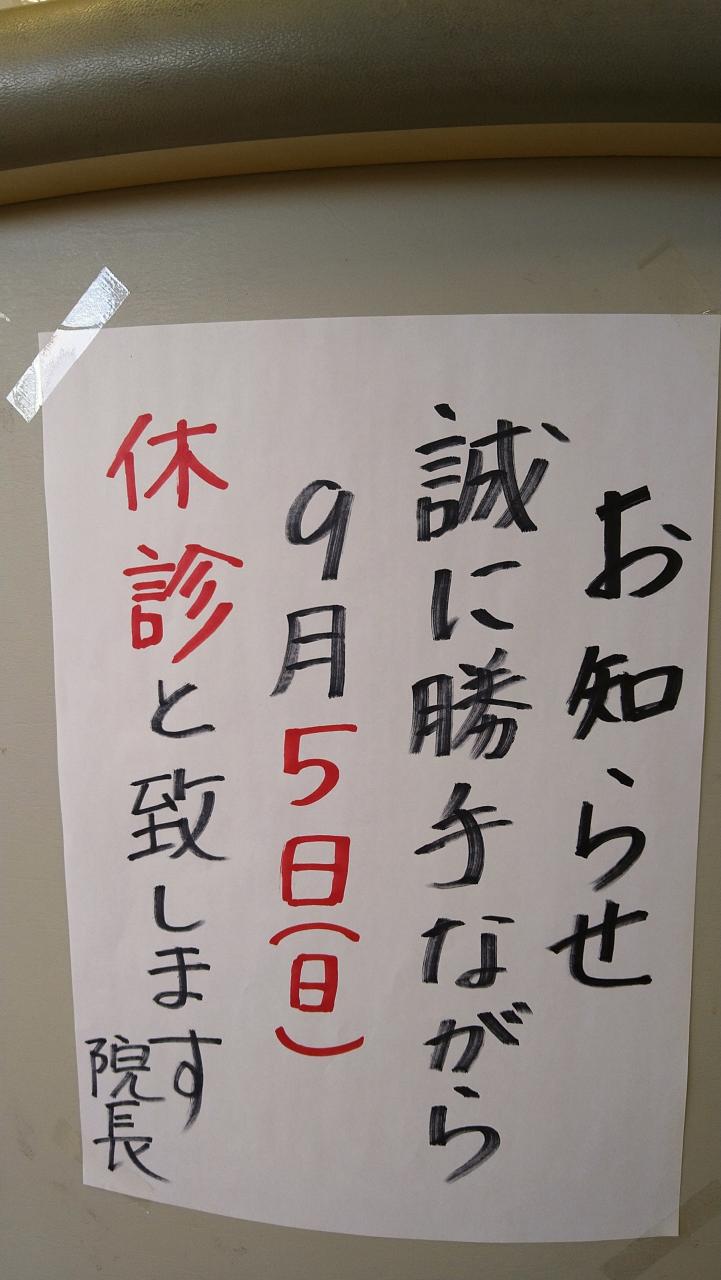 お知らせ
誠に勝手ながら
9月5日(日)
休診と致します
院長